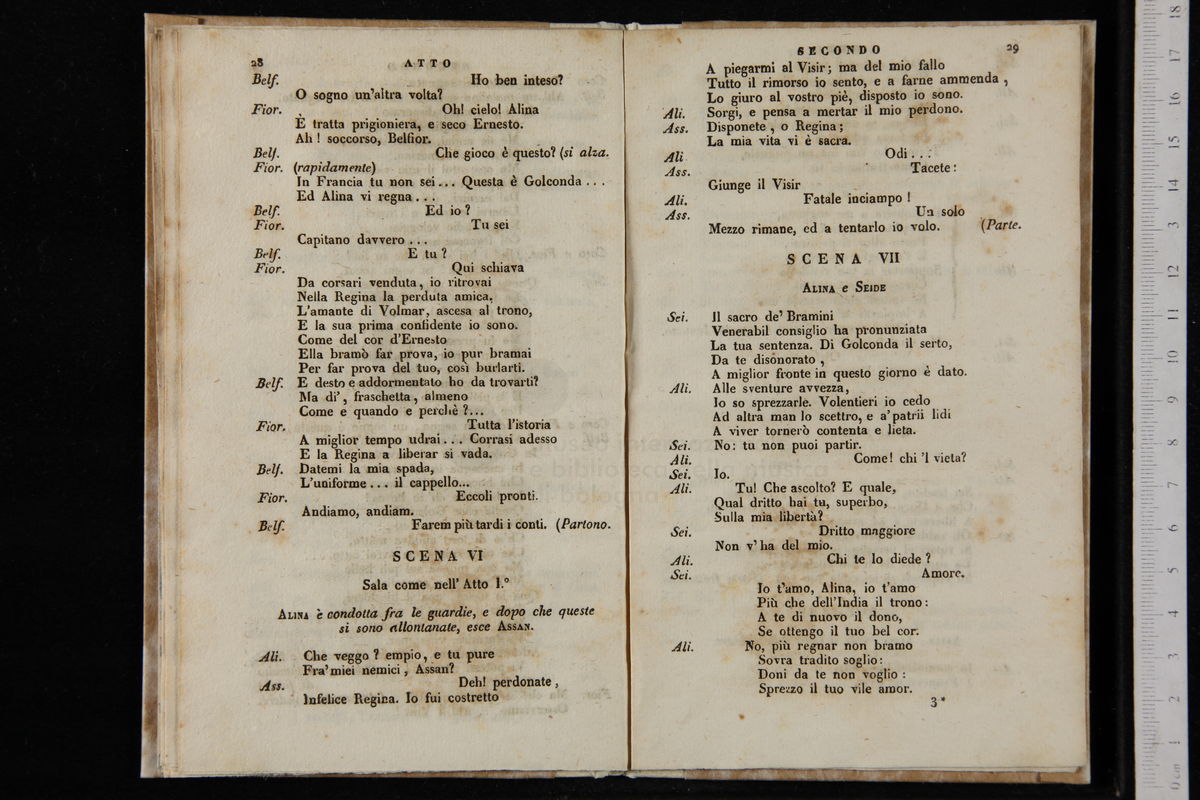 28 ATTO
Belf. Ho ben inteso?
O sogno un'altra volta?
Fior. Oh! cielo! Alina
È tratta prigioniera, e seco Ernesto.
Ah! soccorso, Belfior.
Belf. Che gioco è questo? (si alza.
Fior. (rapidamente)
In Francia tu non sei... Questa è Golconda...
Ed Alina vi regna...
Belf. Ed io?
Fior. Tu sei
Capitano davvero...
Belf. E tu?
Fior. Qui schiava
Da corsari venduta, io ritrovai
Nella Regina la perduta amica,
L'amante di Volmar, ascesa al trono,
E la sua prima confidente io sono.
Come del cor d'Ernesto
Ella bramò far prova, io pur bramai
Per far prova del tuo, così burlarti.
Belf. E desto e addormentato ho da trovarti?
Ma di', fraschetta, almeno
Come e quando e perchè?...
Fior. Tutta l'istoria
A miglior tempo udrai... Corrasi adesso
E la Regina a liberar si vada.
Belf. Datemi la mia spada,
L'uniforme... il cappello...
Fior. Eccoli pronti.
Andiamo, andiam.
Belf. Farem più tardi i conti. (Partono.
SCENA VI
Sala come nell' Atto I.°
ALINA è condotta fra le guardie, e dopo che queste
si sono allontanate, esce ASSAN.
Ali. Che veggo? empio, e tu pure
Fra' miei nemici, Assan?
Ass. Deh! perdonate,
Infelice Regina. Io fui costretto
SECONDO 29
A piegarmi al Visir; ma del mio fallo
Tutto il rimorso io sento, e a farne ammenda,
Lo giuro al vostro piè, disposto io sono.
Ali. Sorgi, e pensa a mertar il mio perdono.
Ass. Disponete, o Regina;
La mia vita vi è sacra.
Ali Odi...
Ass. Tacete:
Giunge il Visir
Ali. Fatale inciampo!
Ass. Un solo
Mezzo rimane, ed a tentarlo io volo. (Parte.
SCENA VII
ALINA e SEIDE
Sei. Il sacro de' Bramini
Venerabil consiglio ha pronunziata
La tua sentenza. Di Golconda il serto,
Da te disonorato,
A miglior fronte in questo giorno è dato.
Ali. Alle sventure avvezza,
Io so sprezzarle. Volentieri io cedo
Ad altra man lo scettro, e a' patrii lidi
A viver tornerò contenta e lieta.
Sei. No: tu non puoi partir.
Ali. Come! chi 'l vieta?
Sei. Io.
Ali. Tu! Che ascolto? E quale,
Qual dritto hai tu, superbo,
Sulla mia libertà?
Sei. Dritto maggiore
Non v' ha del mio.
Ali. Chi te lo diede?
Sei. Amore.
Io t'amo, Alina, io t'amo
Più che dell'India il trono:
A te di nuovo il dono,
Se ottengo il tuo bel cor.
Ali. No, più regnar non bramo
Sovra tradito soglio:
Doni da te non voglio:
Sprezzo il tuo vile amor.
3*